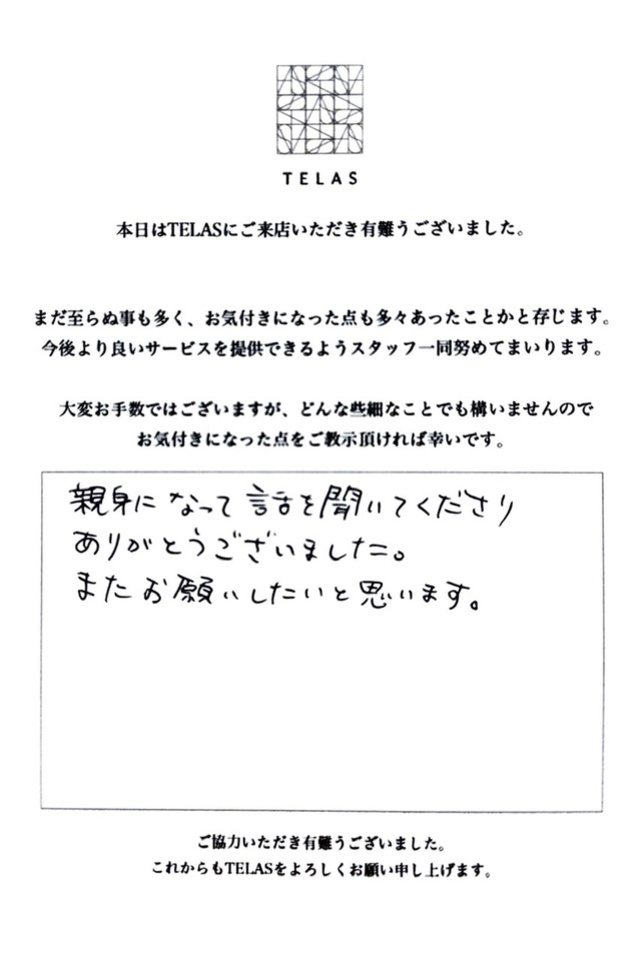 TELAS
本日はTELASにご来店いただき有難うございました。
まだ至らぬ事も多く、お気付きになった点も多々あったことかと存じます。
今後より良いサービスを提供できるようスタッフ一同努めてまいります。
大変お手数ではございますが、どんな些細なことでも構いませんので
お気付きになった点をご教示頂ければ幸いです。
親身になって話を聞いてくださり
ありがとうございました。
またお願いしたいと思います。
ご協力いただき有難うございました。
これからもTELASをよろしくお願い申し上げます。